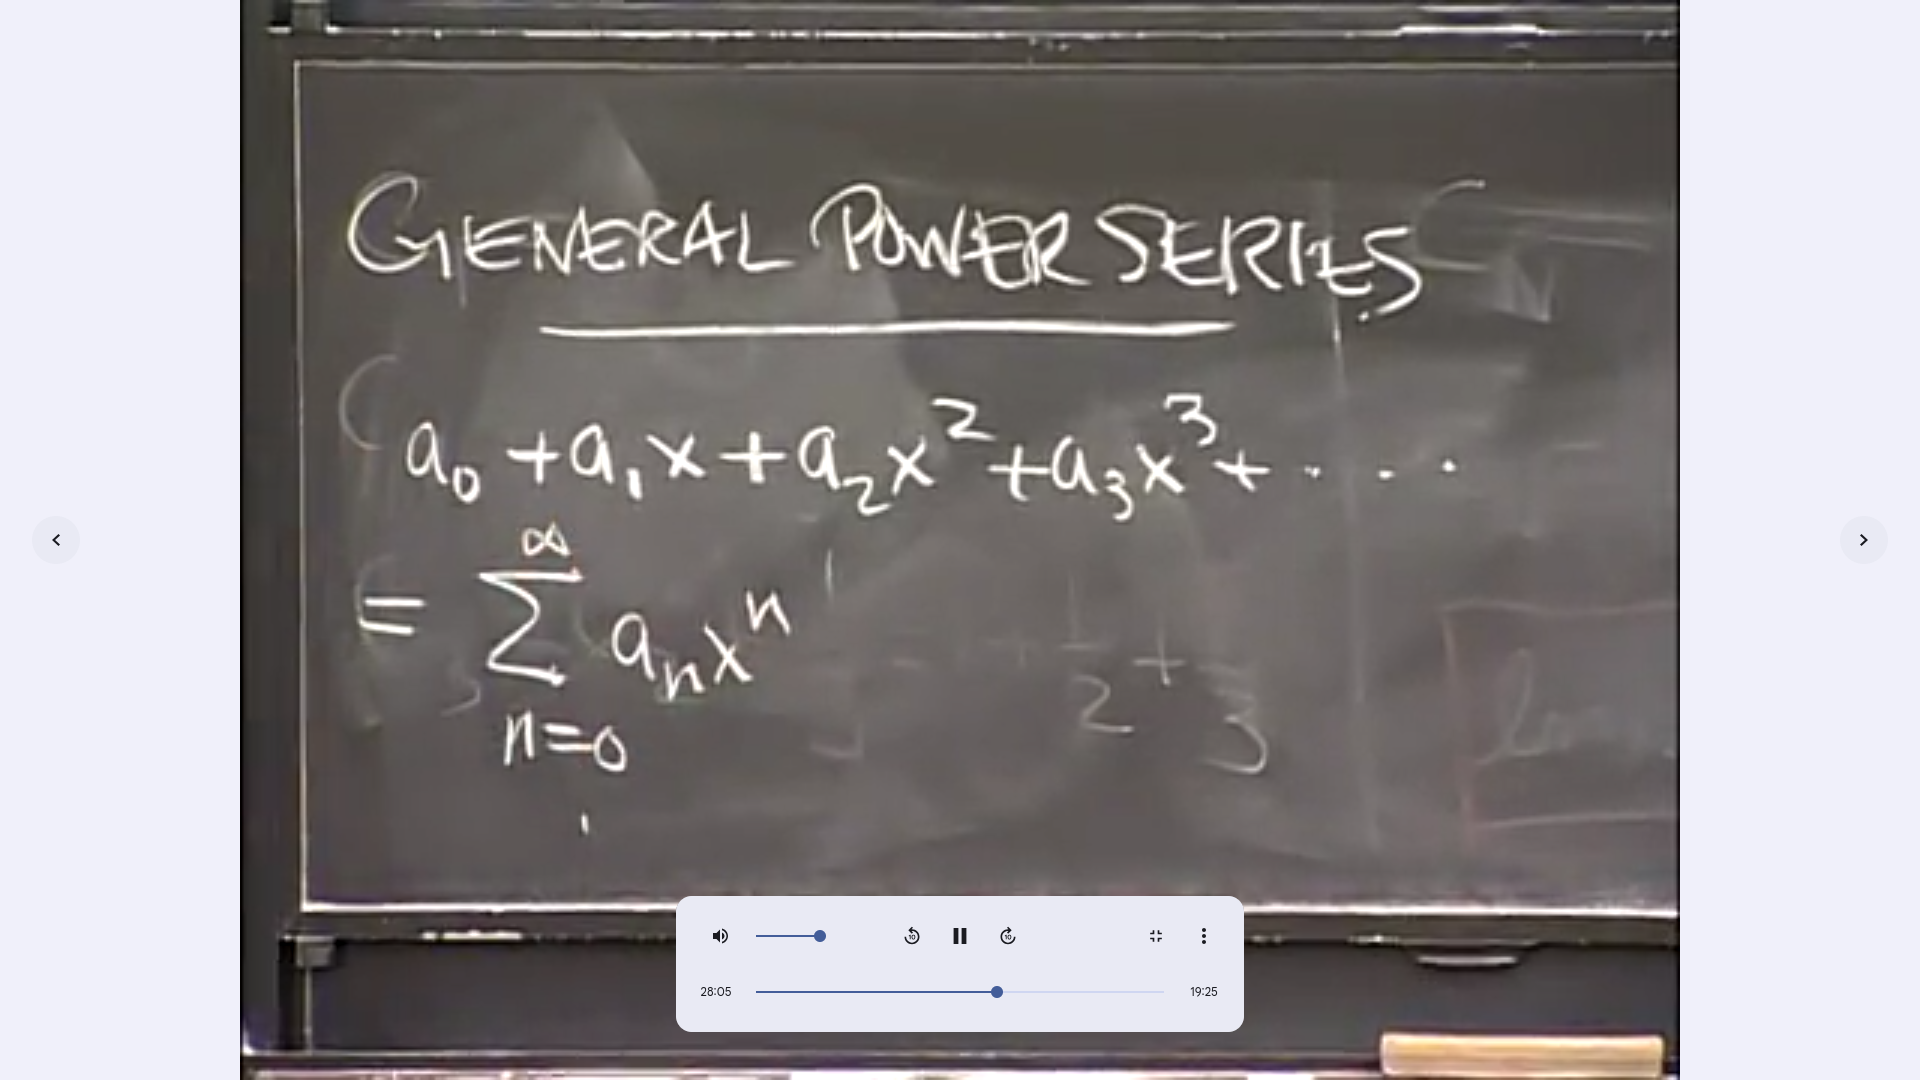 GENERAL POWER SERIES
a₀ + a₁x + a₂x² + a₃x³ + · · ·
= ∑ₙ₌₀^∞ aₙxⁿ
28:05
19:25